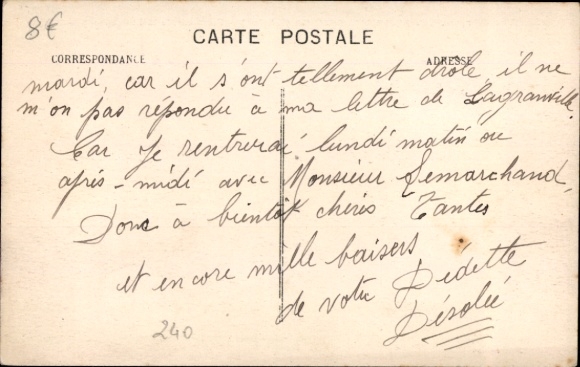 8€
CARTE POSTALE
CORRESPONDANCE
ADRESSE
mardi, car il s'ont tellement drole, il ne
m'on pas répondu à ma lettre de Lagranville.
Car je rentrerai lundi matin ou
après-midi avec Monsieur Lemarchand,
Donc à bientôt chères Tantes
et encore mille baisers
de votre Dédette
Désolée
240